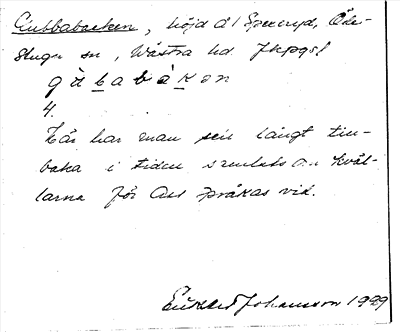 Gubbabacken, höjd å Sperryd, Öde-
stugu sn, Västra hd. Jkpgs l
gùbabàkən
4.
Här har man sen långt till-
baka i tiden samlats om kväl-
larna för att språkas vid.
Erikard Johansson 1929